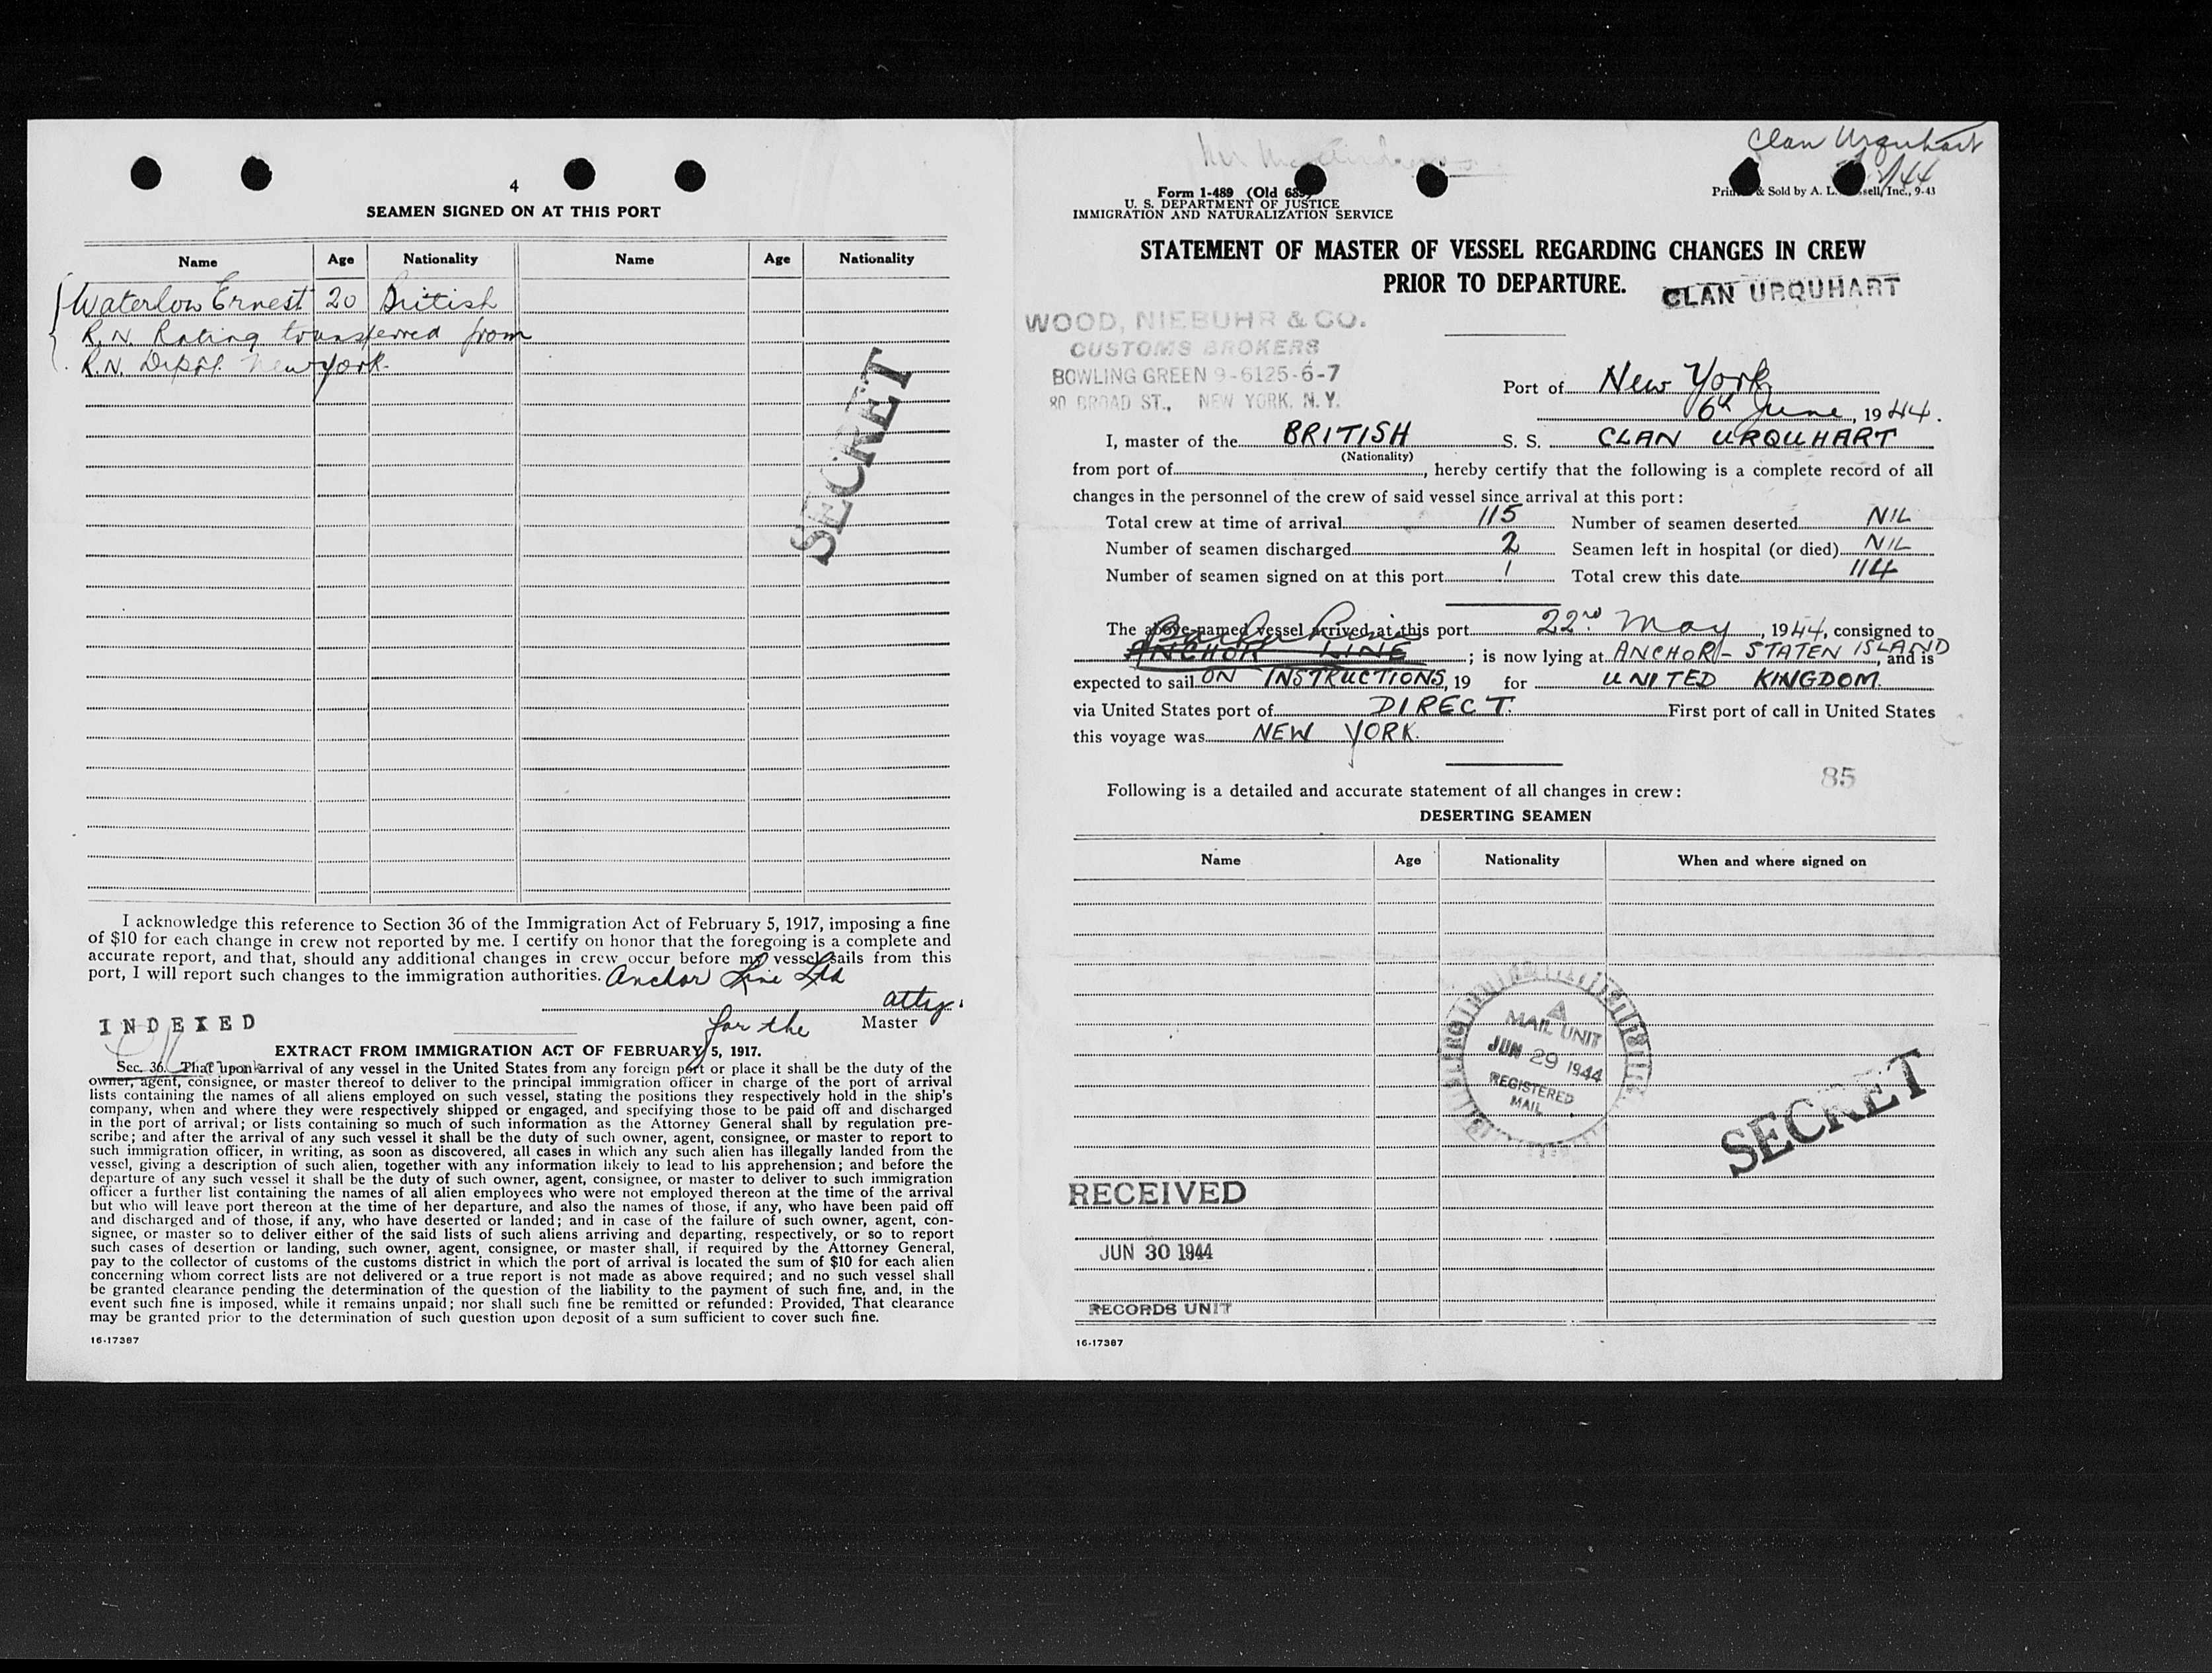 4
SEAMEN SIGNED ON AT THIS PORT
Name Age Nationality Name Age Nationality
Waterlow Ernest 20 British
R.N. Rating transferred from
R.N. Depôt. New York.
SECRET
I acknowledge this reference to Section 36 of the Immigration Act of February 5, 1917, imposing a fine
of $10 for each change in crew not reported by me. I certify on honor that the foregoing is a complete and
accurate report, and that, should any additional changes in crew occur before my vessel sails from this
port, I will report such changes to the immigration authorities. Anchor Line Ltd
atty.
for the Master
INDEXED
EXTRACT FROM IMMIGRATION ACT OF FEBRUARY 5, 1917.
Sec. 36. That upon arrival of any vessel in the United States from any foreign port or place it shall be the duty of the
owner, agent, consignee, or master thereof to deliver to the principal immigration officer in charge of the port of arrival
lists containing the names of all aliens employed on such vessel, stating the positions they respectively hold in the ship's
company, when and where they were respectively shipped or engaged, and specifying those to be paid off and discharged
in the port of arrival; or lists containing so much of such information as the Attorney General shall by regulation pre-
scribe; and after the arrival of any such vessel it shall be the duty of such owner, agent, consignee, or master to report to
such immigration officer, in writing, as soon as discovered, all cases in which any such alien has illegally landed from the
vessel, giving a description of such alien, together with any information likely to lead to his apprehension; and before the
departure of any such vessel it shall be the duty of such owner, agent, consignee, or master to deliver to such immigration
officer a further list containing the names of all alien employees who were not employed thereon at the time of the arrival
but who will leave port thereon at the time of her departure, and also the names of those, if any, who have been paid off
and discharged and of those, if any, who have deserted or landed; and in case of the failure of such owner, agent, con-
signee, or master so to deliver either of the said lists of such aliens arriving and departing, respectively, or so to report
such cases of desertion or landing, such owner, agent, consignee, or master shall, if required by the Attorney General,
pay to the collector of customs of the customs district in which the port of arrival is located the sum of $10 for each alien
concerning whom correct lists are not delivered or a true report is not made as above required; and no such vessel shall
be granted clearance pending the determination of the question of the liability to the payment of such fine, and, in the
event such fine is imposed, while it remains unpaid; nor shall such fine be remitted or refunded: Provided, That clearance
may be granted prior to the determination of such question upon deposit of a sum sufficient to cover such fine.
16-17387
Clan Urquhart
Form 1-489 (Old 689)
U. S. DEPARTMENT OF JUSTICE
IMMIGRATION AND NATURALIZATION SERVICE
& Sold by A. L. Inc., 9-43
STATEMENT OF MASTER OF VESSEL REGARDING CHANGES IN CREW
PRIOR TO DEPARTURE.
CLAN URQUHART
WOOD, NIEBUHR & CO.
CUSTOMS BROKERS
BOWLING GREEN 9-6125-6-7
80 BROAD ST., NEW YORK, N. Y.
Port of New York
6th June, 1944.
I, master of the BRITISH S. S. CLAN URQUHART
(Nationality)
from port of , hereby certify that the following is a complete record of all
changes in the personnel of the crew of said vessel since arrival at this port:
Total crew at time of arrival 115 Number of seamen deserted NIL
Number of seamen discharged 2 Seamen left in hospital (or died) NIL
Number of seamen signed on at this port 1 Total crew this date 114
The above-named vessel arrived at this port 22nd May, 1944, consigned to
ANCHOR LINE ; is now lying at ANCHOR - STATEN ISLAND, and is
expected to sail ON INSTRUCTIONS, 19 for UNITED KINGDOM.
via United States port of DIRECT. First port of call in United States
this voyage was NEW YORK.
85
Following is a detailed and accurate statement of all changes in crew:
DESERTING SEAMEN
Name Age Nationality When and where signed on
A
MAIL UNIT
JUN 29 1944
REGISTERED
MAIL
SECRET
RECEIVED
JUN 30 1944
RECORDS UNIT
16-17387